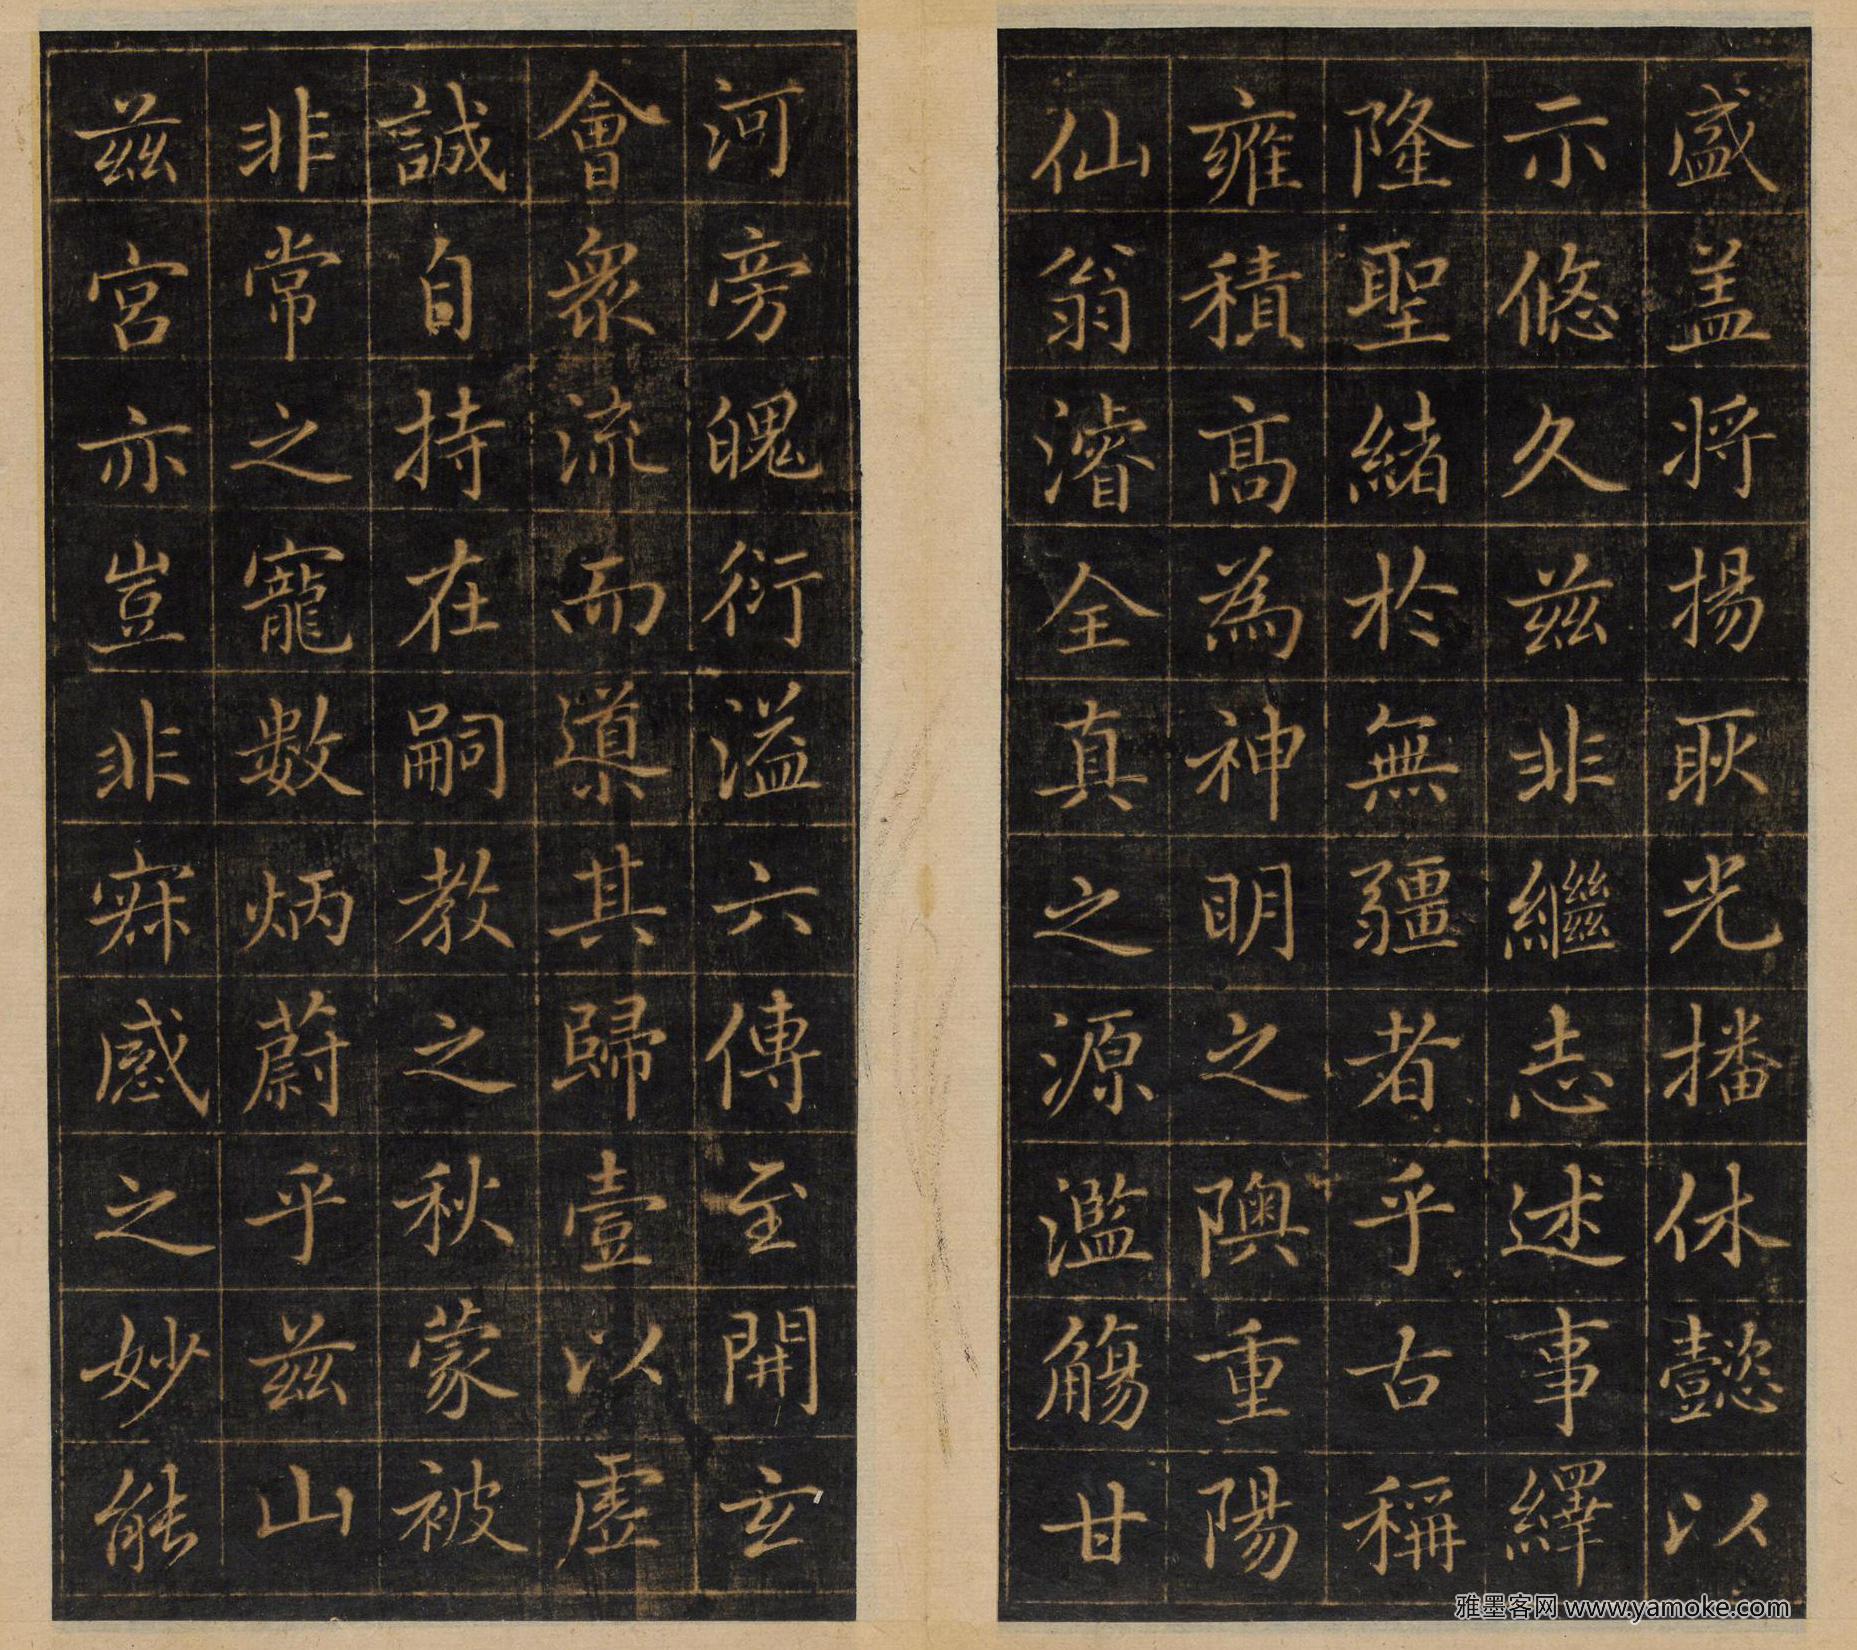 盛盖将揚耿光播休懿以
示悠久兹非繼志述事繹
隆聖緒於無疆者乎古稱
雍積高為神明之隩重陽
仙翁濬全真之源濫觴甘
河旁魄衍溢六傳至開玄
會衆流而導其歸壹以虚
誠自持在嗣教之秋蒙被
非常之寵數炳蔚乎兹山
兹宮亦豈非寂感之妙能
雅墨客网 www.yamoke.com